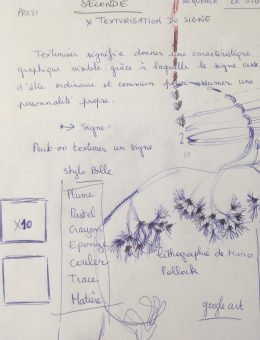 PRESI SECONDE SEQUENCE LE SI
x TEXTURISATION DU SIGNE
Texturiser signifie donner une caractéristique
graphique visible grâce à laquelle le signe cesse
d'être ordinaire et commun pour assumer une
personnalité propre.
Signe.
Peut on texturer un signe
Style Bille
Plume
Pastel
Crayon
Eponge
Couler
Trace
Matière
X10
Lithographie de Miro
Pollock
google art